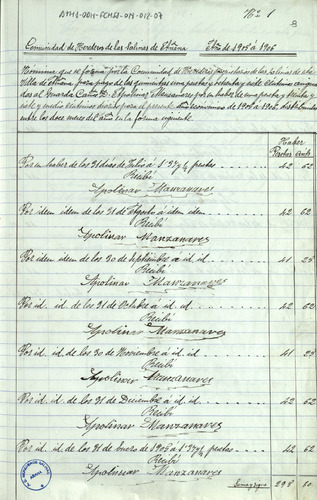 ATHA-DOH-FCMSA-OM-012-07
Nº 1
8
Comunidad de Herederos de las Salinas de Añana Año de 1905 á 1906
Nómina que se forma por la Comunidad de Herederos propietarios de las Salinas de esta
villa de Añana para pago de las quinientas una pesetas, ochenta y siete céntimos
al Guarda D. Apolinar Manzanares por su haber de una peseta y treinta y
siete y medio céntimos diarios para el presente año económico de 1905 á 1906, distribuidas
entre los doce meses del año en la forma siguiente
Haber
Pesetas cénts
Por su haber de los 31 dias de Julio á 1'37½ pesetas 42 62
Recibí
Apolinar Manzanares
Por idem idem de los 31 de Agosto á idem idem 42 62
Recibí
Apolinar Manzanares
Por idem idem de los 30 de Septiembre á id. id. 41 25
Recibí
Apolinar Manzanares
Por id. id. de los 31 de Octubre á id. id. 42 62
Recibí
Apolinar Manzanares
Por id. id. de los 30 de Noviembre á id. id. 41 25
Recibí
Apolinar Manzanares
Por id. id. de los 31 de Diciembre á id. id. 42 62
Recibí
Apolinar Manzanares
Por id. id. de los 31 de Enero de 1906 á 1'37½ pesetas 42 62
Recibí
Apolinar Manzanares
Suma y sigue 295 60